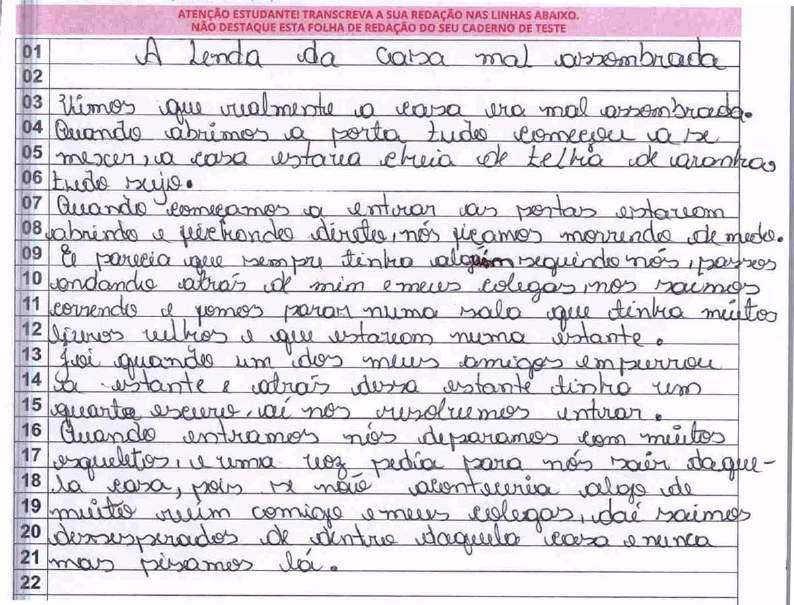 ATENÇÃO ESTUDANTE! TRANSCREVA A SUA REDAÇÃO NAS LINHAS ABAIXO.
NÃO DESTAQUE ESTA FOLHA DE REDAÇÃO DO SEU CADERNO DE TESTE
01 A Lenda da Casa mal assombrada
02
03 Vimos que realmente a casa era mal assombrada.
04 Quando abrimos a porta tudo começou a se
05 mexer, a casa estava cheia de telhia de aranhas
06 tudo sujo.
07 Quando começamos a entrar as portas estavam
08 abrindo e feichando direto, nós ficamos morrendo de medo.
09 E parecia que sempre tinha alguém seguindo nós, passos
10 andando atrás de mim e meus colegas, nos saimos
11 correndo e fomos parar numa sala que tinha muitos
12 livros velhos e que estavam numa estante.
13 Foi quando um dos meus amigos empurrou
14 a estante e atrás dessa estante tinha um
15 quarto escuro, aí nos resolvemos entrar.
16 Quando entramos nós deparamos com muitos
17 esqueletos, e uma voz pedia para nós sair daque-
18 la casa, pois se não aconteceria algo de
19 muito ruim comigo e meus colegas, daí saimos
20 dessesperados de dentro daquela casa e nunca
21 mas pisamos lá.
22